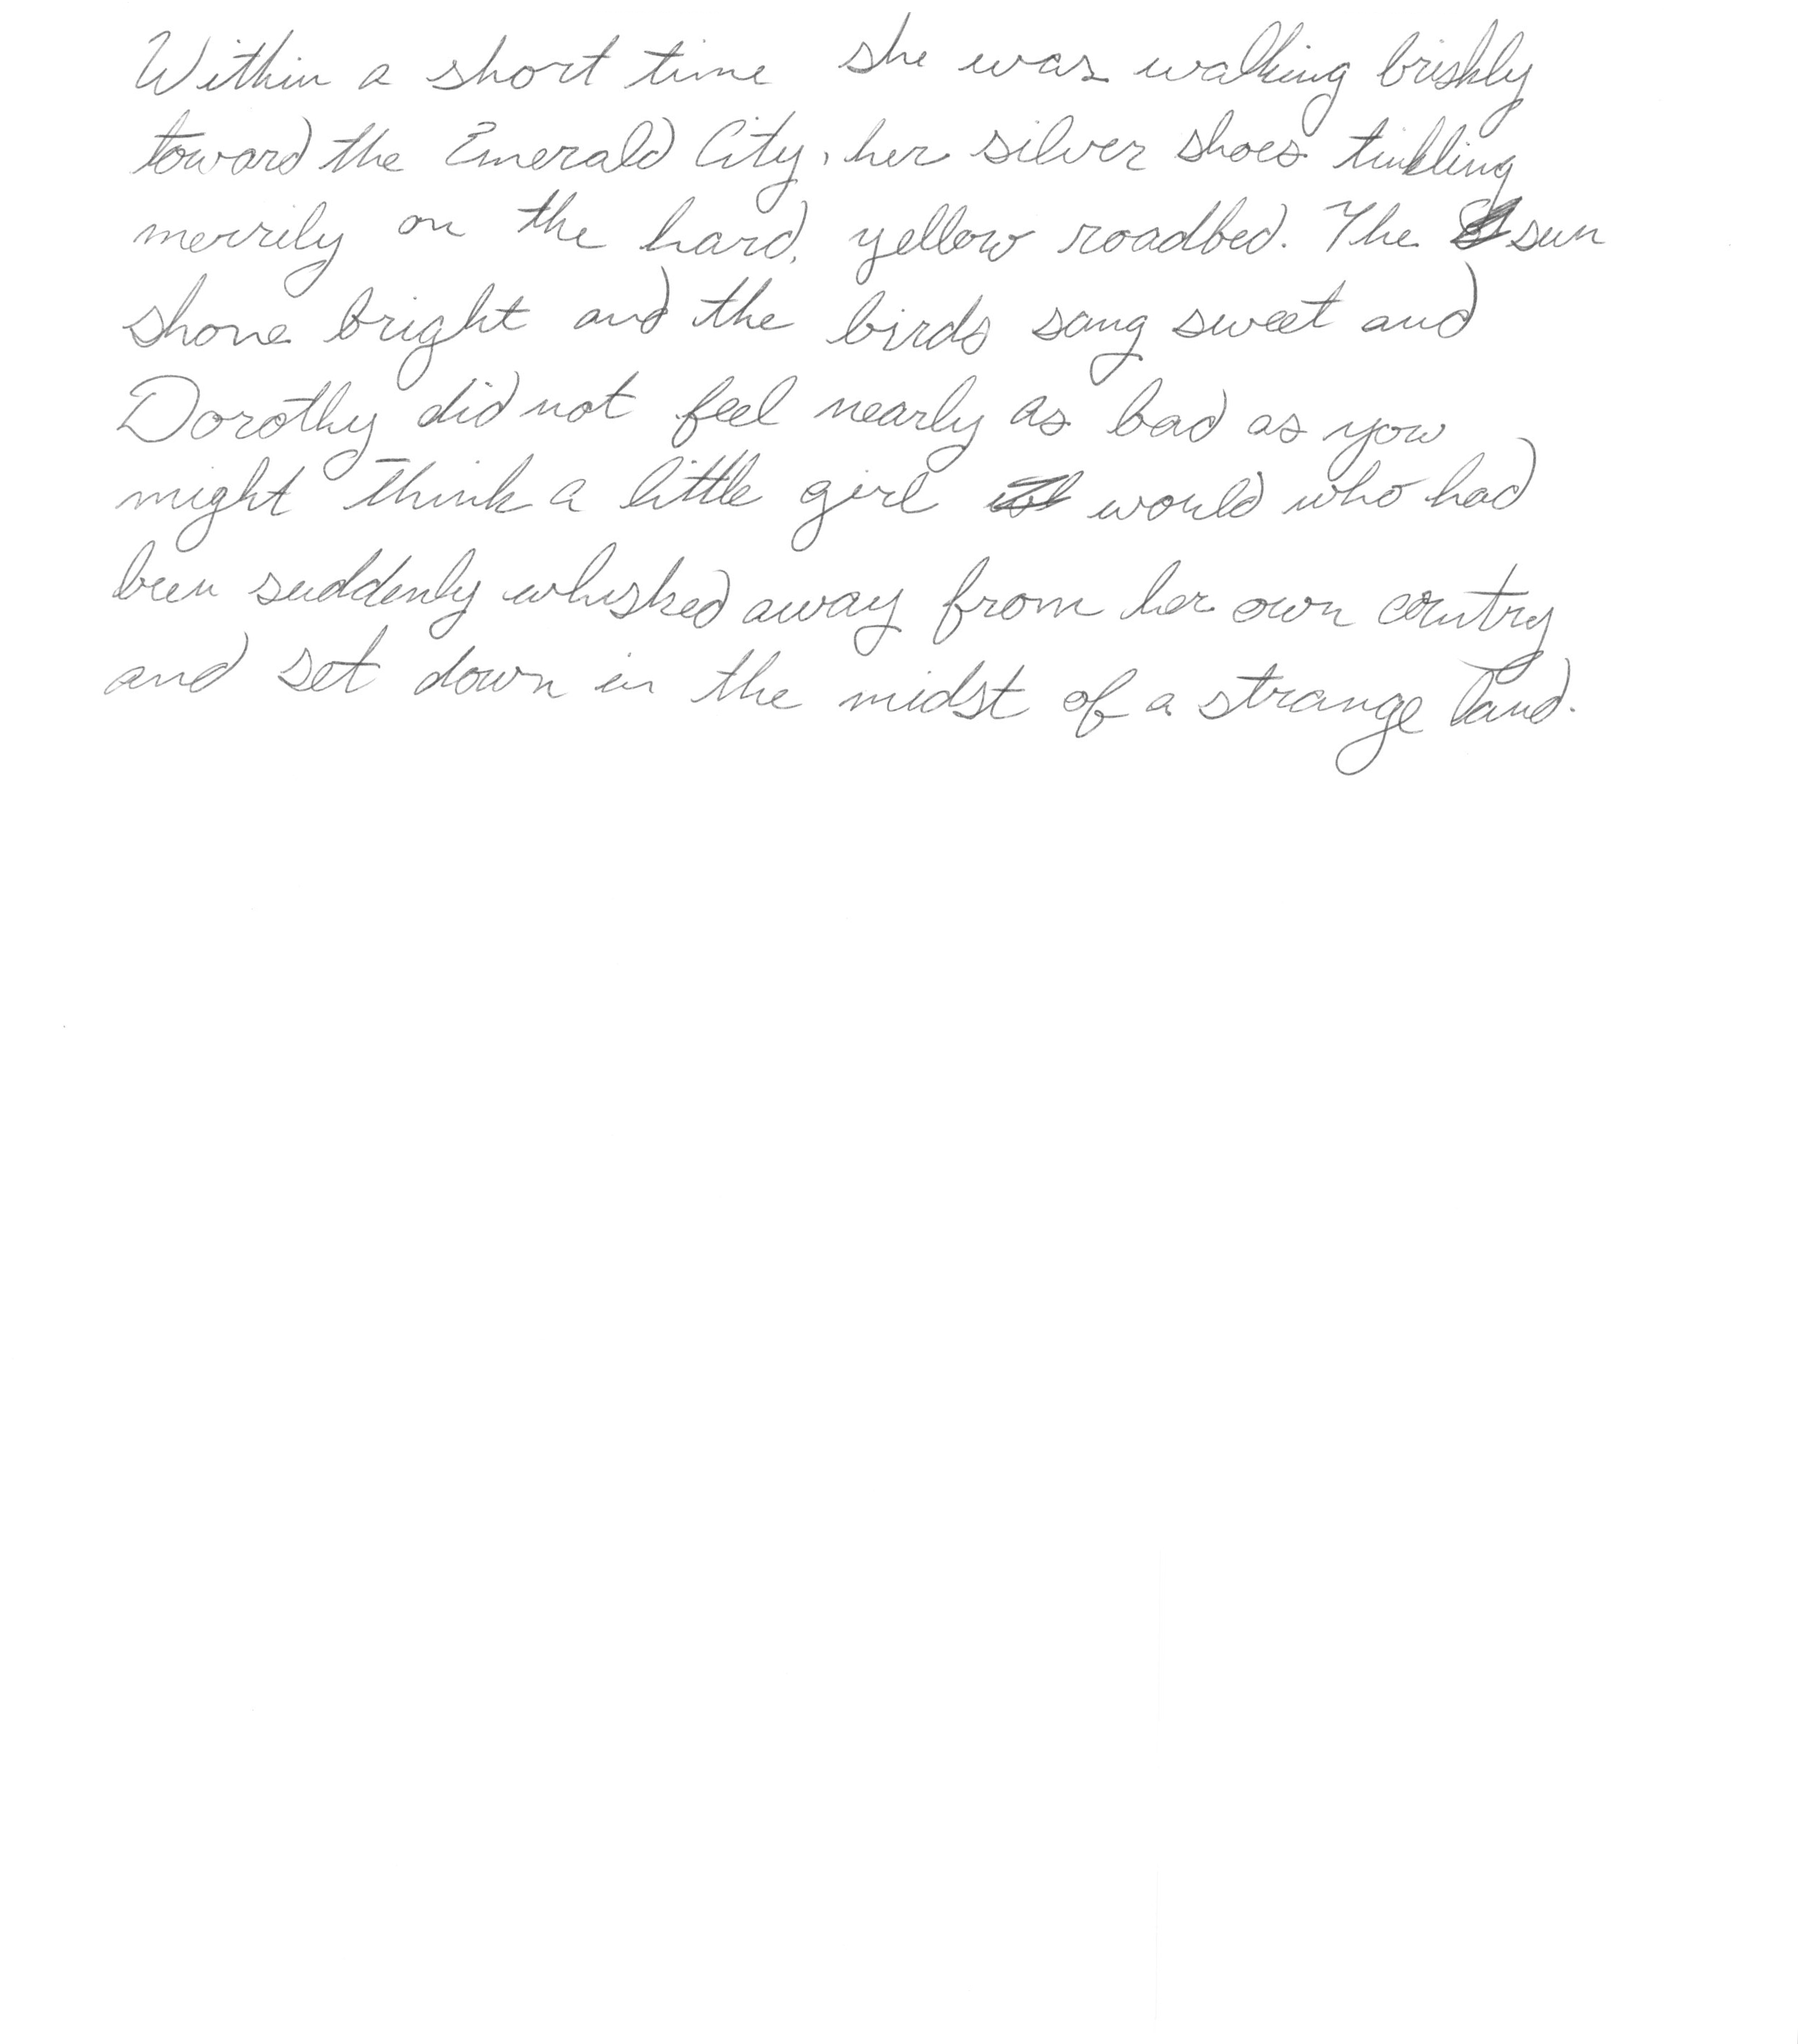 Within a short time she was walking briskly
toward the Emerald City, her silver shoes tinkling
merrily on the hard, yellow roadbed. The sun
shone bright and the birds sang sweet and
Dorothy did not feel nearly as bad as you
might think a little girl would who had
been suddenly whisked away from her own country
and set down in the midst of a strange land.